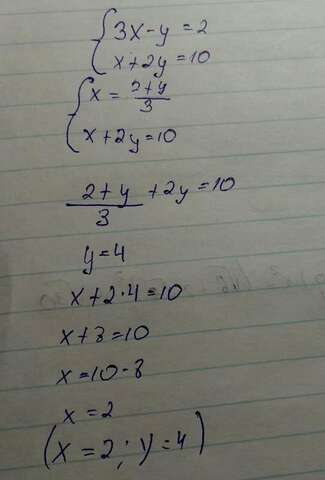 3x-y=2
x+2y=10
x=(2+y)/3
x+2y=10
(2+y)/3+2y=10
y=4
x+2·4=10
x+8=10
x=10-8
x=2
(x=2; y=4)